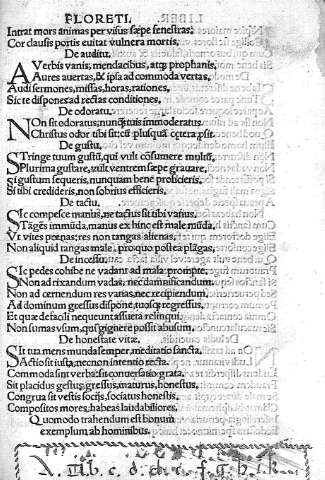 FLORETI.
Intrat mors animas per visus sæpe fenestras:
Cor clausis portis euitat vulnera mortis.
De auditu.
A Verbis vanis, mendacibus, atq; prophanis,
Aures auertas, & ipsa ad commoda vertas,
Audi sermones, missas, horas, rationes,
Sic te dispones ad rectas conditiones.
De odoratu.
NOn sit odoratus, nunq̃ tuis immoderatus.
Christus odor tibi sit: cũ plusquã cętera ꝓsit.
De gustu.
STringe tuum gustũ, qui vult cõsumere multũ,
Plurima gustare, vult ventrem sæpe grauare,
Si gustum sequeris, nunquam bene proficieris.
Si tibi credideris, non sobrius efficieris.
De tactu.
SIc compesce manus, ne tactus sit tibi vanus,
Tãges immũda, manus ex hinc est male mũda,
Vt vites pœnas: res non tangas alienas,
Non aliquid tangas male, ꝓ quo postea plãgas,
De incessu.
SIc pedes cohibe ne vadant ad mala prompte,
Non ad rixandum vadas, nec damnificandum.
Non ad cernendum res vanas, nec recipiendum,
Ad dominum gressus dispone, tuosq; regressus,
Et quæ de facili nequeunt assueta relinqui.
Non sumas vsum, qui gignere possit abusum,
De honestate vitæ.
SIt tua mens munda semper, meditatio sancta,
Actio sit iusta, nec non intentio recta.
Commoda sint verba: sit conuersatio grata.
Sit placidus gestus, gressus, maturus, honestus,
Congrua sit vestis socijs, sociatus honestis.
Compositos mores, habeas laudabiliores,
Quomodo trahendum est bonum
exemplum ab hominibus.